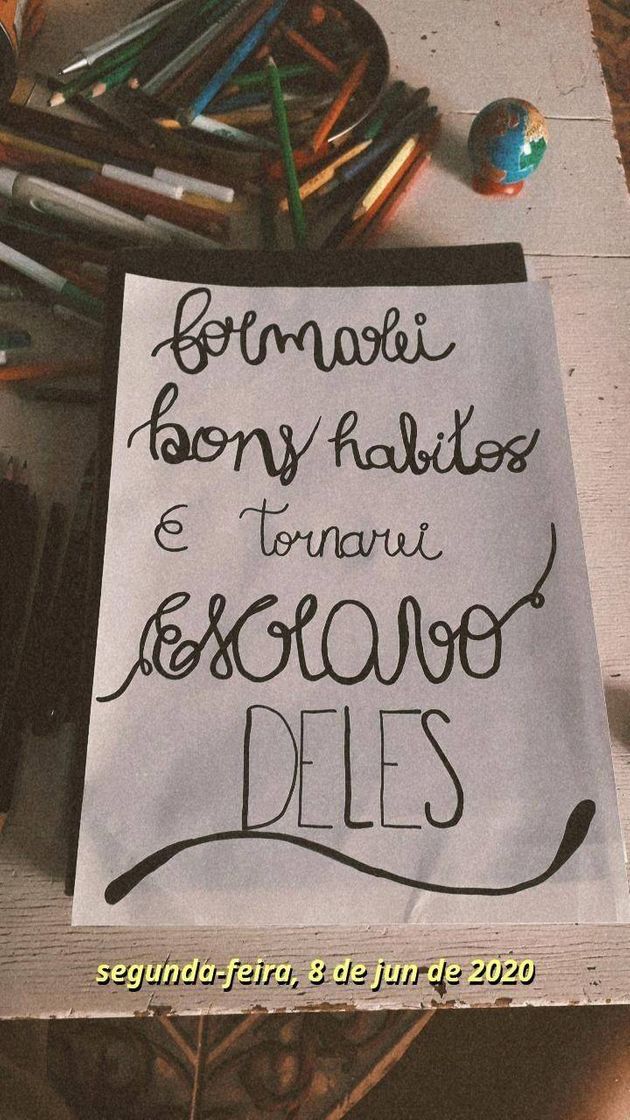 formarei
bons habitos
e tornarei
ESCLAVO
DELES
segunda-feira, 8 de jun de 2020